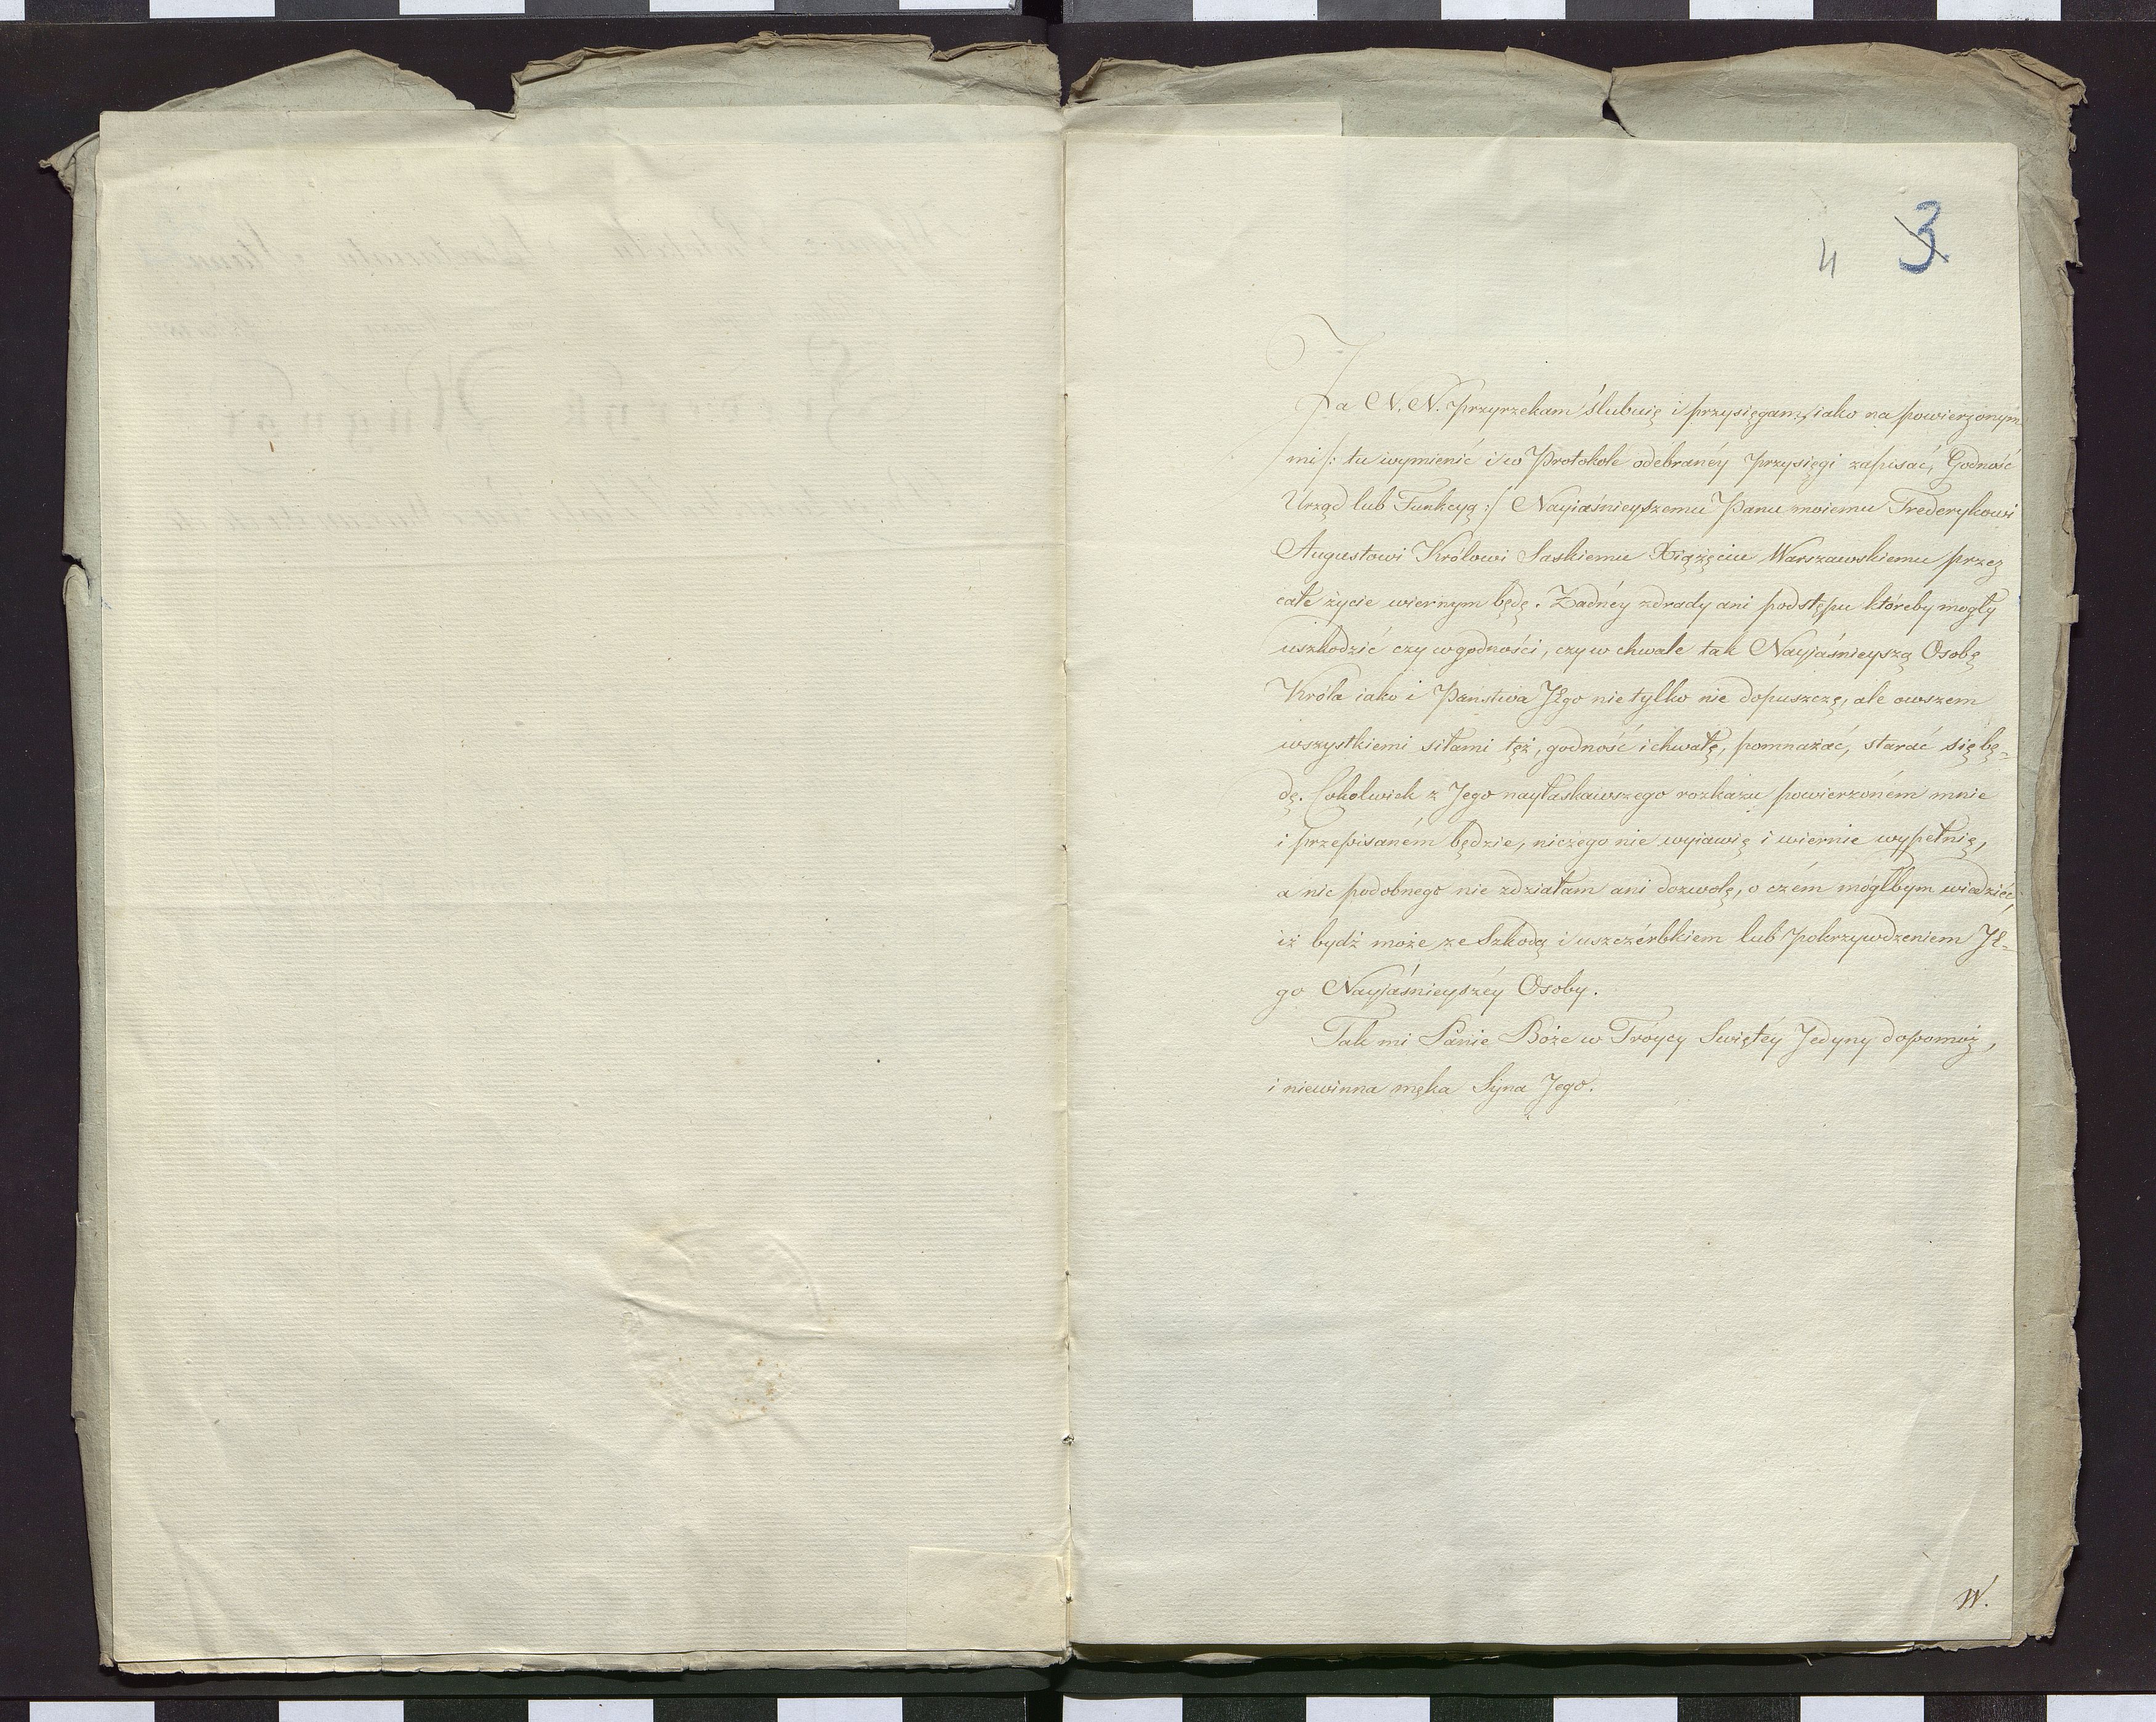 4 3
Ja N. N. przyrzekam ślubuię i przysięgam, iako na powierzonym
mi /: tu wymienić i w Protokole odebranéy przysięgi zapisać, Godność
Urząd lub Funkcyą :/ Nayiaśnieyszemu Panu moiemu Frederykowi
Augustowi Królowi Saskiemu Xiążęciu Warszawskiemu przez
całe życie wiernym będę. Żadnéy zdrady ani podstępu któreby mogły
uszkodzić czy w godności, czy w chwale tak Nayjaśnieyszą Osobę
Króla iako i Panstwa JEgo nie tylko nie dopuszczę, ale owszem
wszystkiemi siłami też, godność i chwałę, pomnażać, starać się bę-
dę. Cokolwiek z Jego nayłaskawszego rozkazu powierzoném mnie
i przepisaném będzie, niczego nie wyiawię i wiernie wypełnię,
a nic podobnego nie zdziałam ani dozwolę, o czém mógłbym wiedzieć,
iż bydź może ze Szkodą i uszczérbkiem lub pokrzywdzeniem JE-
go Nayjaśnieyszéy Osoby.
Tak mi Panie Boże w Tróycy Swiętéy Jedyny dopomóż,
i niewinna męka Syna Jego.
W.